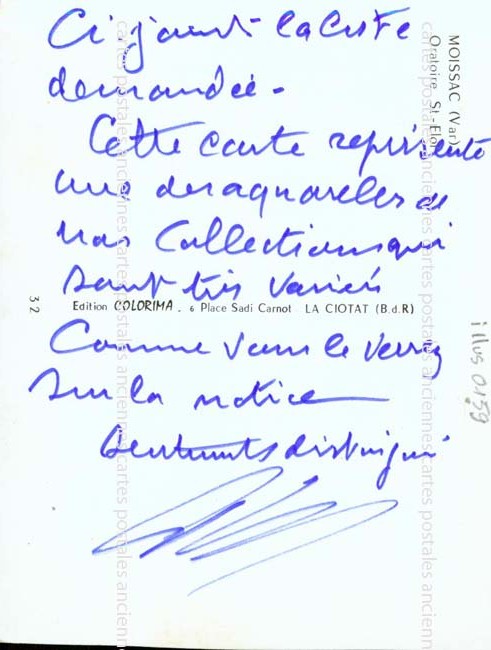 Ci-joint la liste
demandée -
Cette carte représente
une des aquarelles de
nos Collections qui
sont très variées
Comme vous le verrez
sur la notice
Sentiments distingués
MOISSAC (Var)
Oratoire St-Eloi
32
Edition COLORIMA. 6 Place Sadi Carnot LA CIOTAT (B.d.R)
illus 0159
cartes postales anciennes cartes postales anciennes cartes postales anciennes